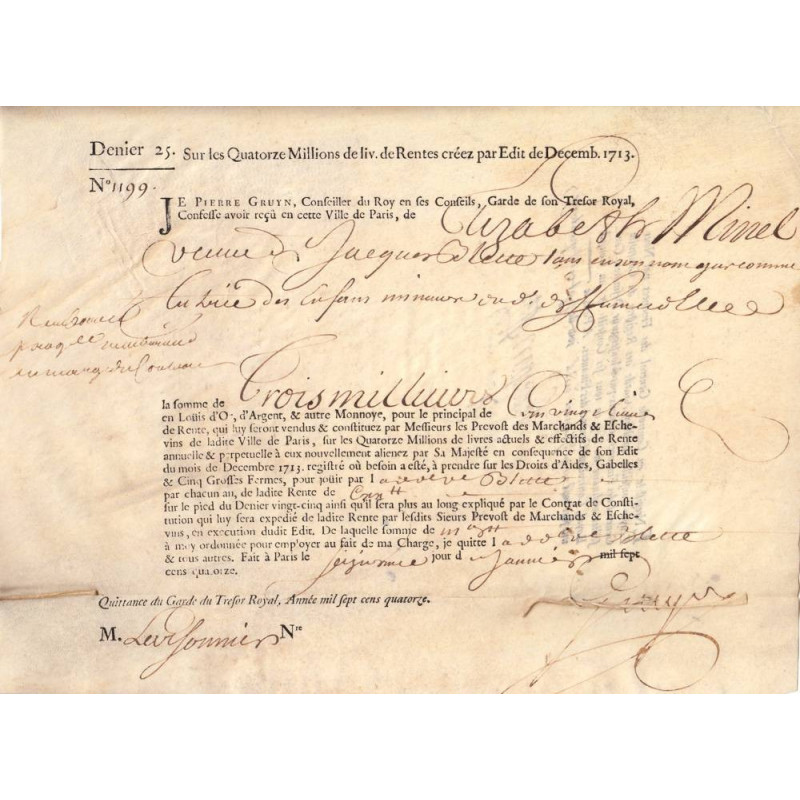 Denier 25. Sur les Quatorze Millions de liv. de Rentes créez par Edit de Decemb. 1713.
N° 1199.
JE PIERRE GRUYN, Conseiller du Roy en ses Conseils, Garde de son Tresor Royal,
Confesse avoir reçû en cette Ville de Paris, de Elizabeth Minel
veuve de Jacques tant en son nom que comme
tutrice des Enfans mineurs
la somme de Trois mil livres
en Loüis d'Or, d'Argent, & autre Monnoye, pour le principal de
de Rente, qui luy seront vendus & constituez par Messieurs les Prevost des Marchands & Esche-
vins de ladite Ville de Paris, sur les Quatorze Millions de livres actuels & effectifs de Rente
annuelle & perpetuelle à eux nouvellement alienez par Sa Majesté en consequence de son Edit
du mois de Decembre 1713. registré où besoin a esté, à prendre sur les Droits d'Aides, Gabelles
& Cinq Grosses Fermes, pour joüir par l
par chacun an, de ladite Rente de
sur le pied du Denier vingt-cinq ainsi qu'il sera plus au long expliqué par le Contrat de Consti-
tution qui luy sera expedié de ladite Rente par lesdits Sieurs Prevost de Marchands & Esche-
vins, en execution dudit Edit. De laquelle somme de
à moy ordonnée pour employer au fait de ma Charge, je quitte l
& tous autres. Fait à Paris le jour d Janvier mil sept
cens quatorze.
Quittance du Garde du Tresor Royal, Année mil sept cens quatorze.
Gruyn
M. Nre